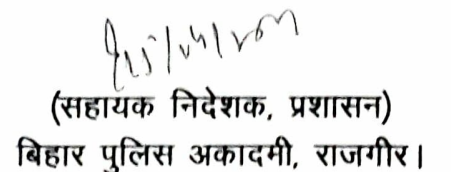 (सहायक निदेशक, प्रशासन)
बिहार पुलिस अकादमी, राजगीर।